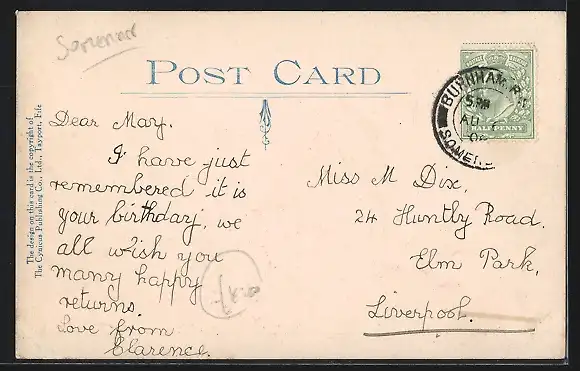 Somerset
POST CARD
BURNHAM
5 PM
AU
SOMERS
HALFPENNY
Dear Mary.
I have just
remembered it is
your birthday, we
all wish you
many happy
returns.
Love from
Clarence.
Miss M Dix,
24 Huntly Road.
Elm Park,
Liverpool.
The design on this card is the copyright of
The Cynicus Publishing Co., Ltd., Tayport, Fife